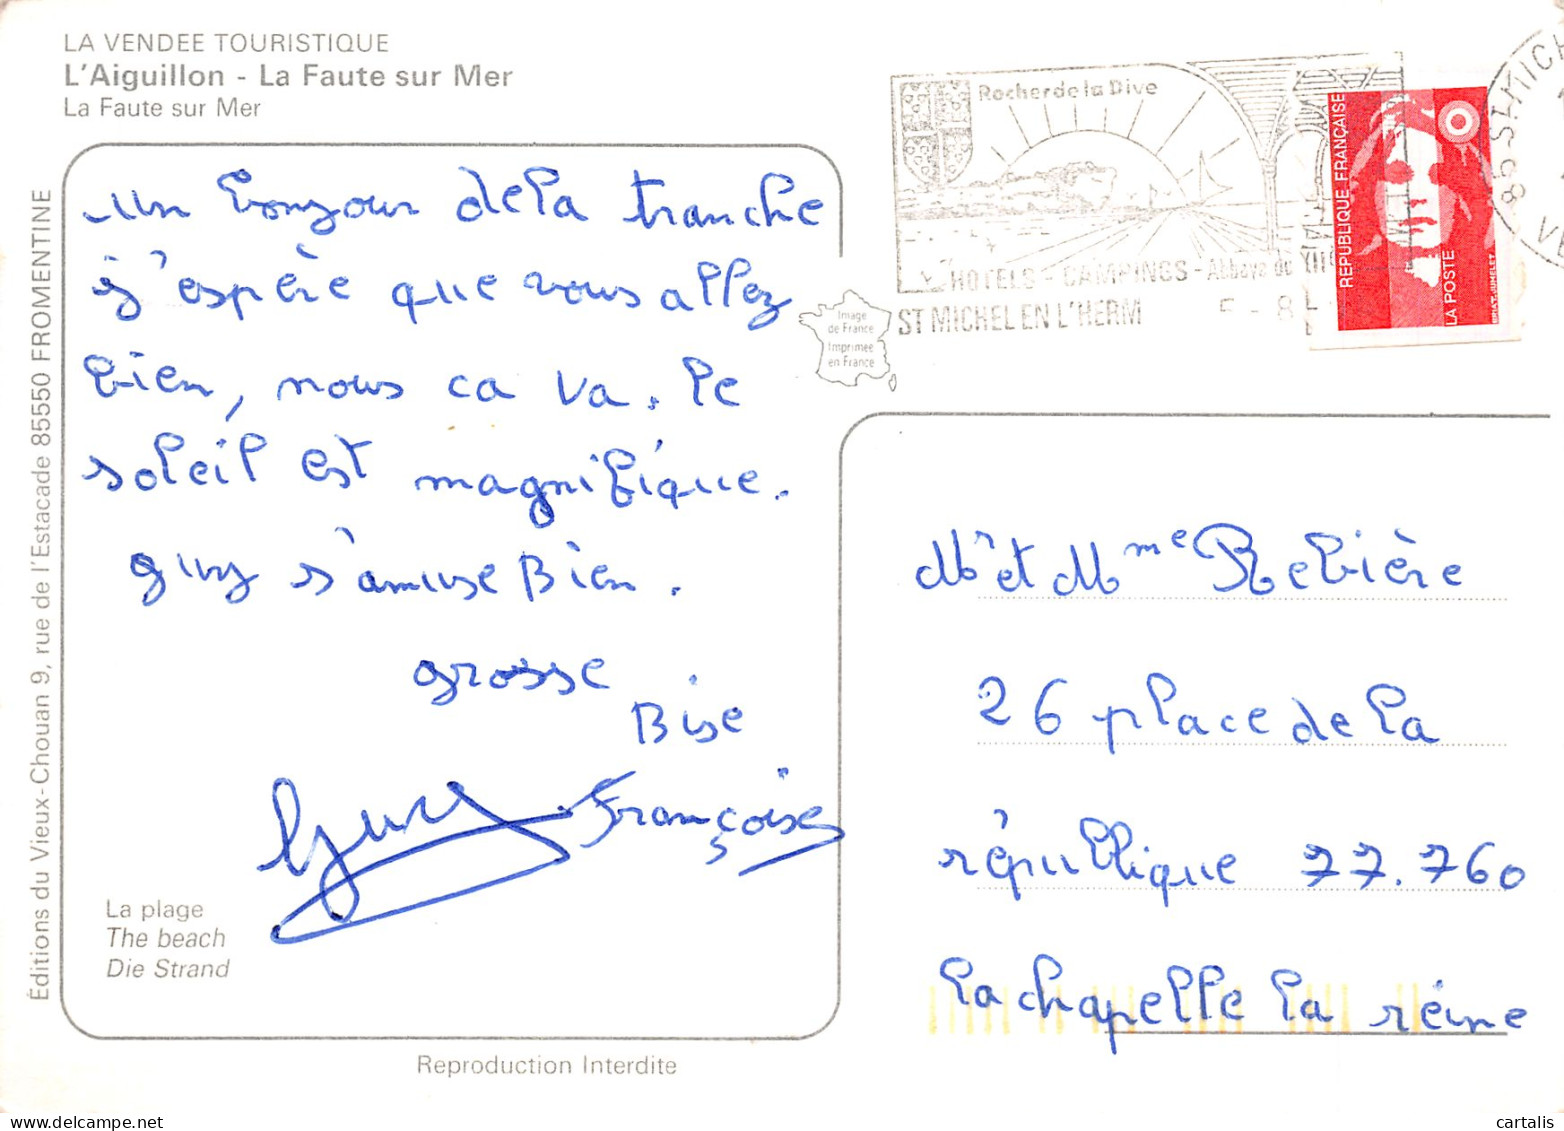 LA VENDEE TOURISTIQUE
L'Aiguillon - La Faute sur Mer
La Faute sur Mer
Éditions du Vieux-Chouan 9, rue de l'Estacade 85550 FROMENTINE
un bonjour de la tranche
j'espère que vous allez
bien, nous ca va. le
soleil est magnifique.
guy s'amuse Bien.
grosse
Bise
Françoise
La plage
The beach
Die Strand
Reproduction Interdite
Rocher de la Dive
HOTELS - CAMPINGS - Abbaye du XIIe
ST MICHEL EN L'HERM
Image
de France
Imprimée
en France
RÉPUBLIQUE FRANÇAISE
LA POSTE
85-ST-MICH
VE
Mr et Mme Rebière
26 place de la
république 77.760
la chapelle la reine
cartalis